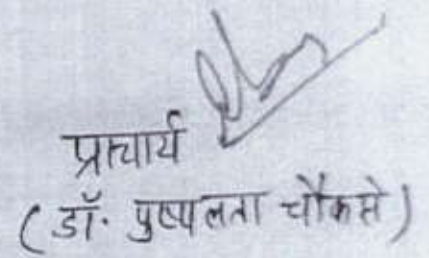 प्राचार्य
(डॉ. पुष्पलता चौकसे)